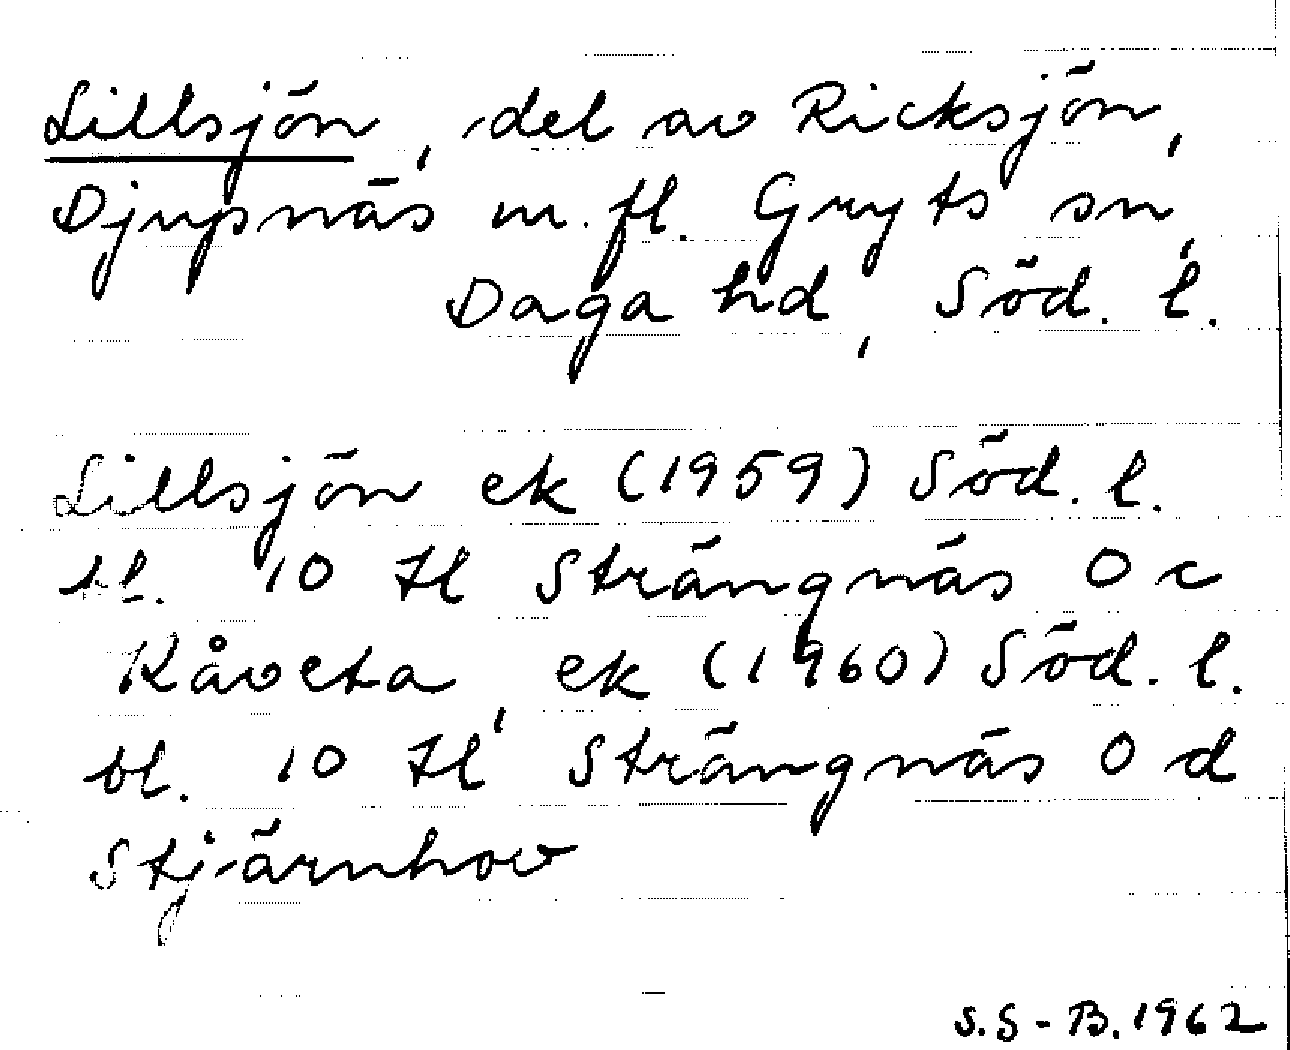 Lillsjön, del av Ricksjön,
Djupnäs m. fl. Gryts sn,
Daga hd, Söd. l.
Lillsjön ek (1959) Söd. l.
bl. 10 Hl Strängnäs O c
Kåveta, ek (1960) Söd. l.
bl. 10 Hl Strängnäs O d
Stjärnhov
S.S-B. 1962